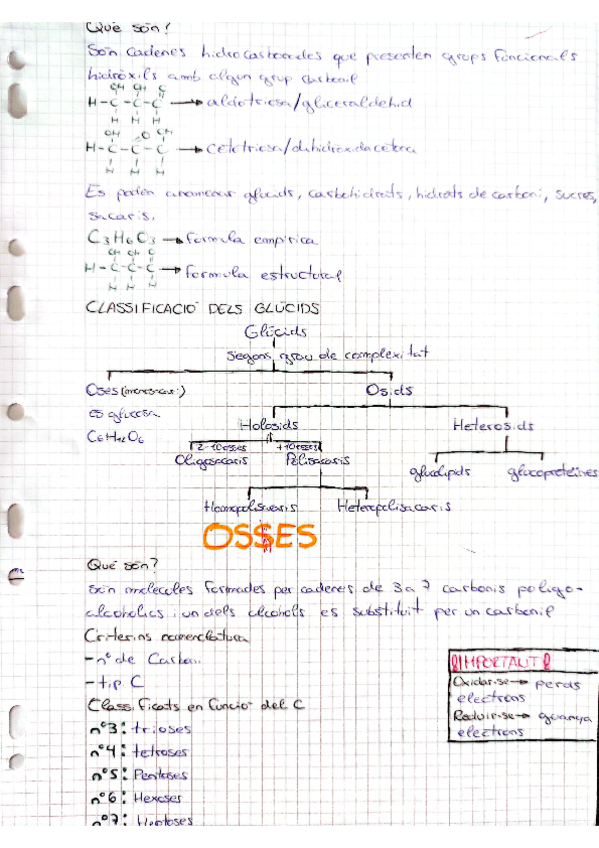 Què són?
Són cadenes hidrocarbonades que presenten grups funcionals
hidròxils amb algun grup carbonil
OH OH O
H-C-C-C → aldotriosa/gliceraldehid
H H H
OH O OH
H-C-C-C → cetotriosa/dihidroxidacetona
H H
Es poden anomenar glúcids, carbohidrats, hidrats de carboni, sucres,
sacaris.
C3H6O3 → fórmula empírica
OH OH O
H-C-C-C → formula estructural
H H H
CLASSIFICACIÓ DELS GLÚCIDS
Glúcids
Segons grau de complexitat
Oses (monosacari) Osids
es glucosa
C6H12O6
Holosids Heterosids
2-10 oses +10 oses
Oligosacaris Polisacaris glucolípids glucoproteïnes
Homopolisacaris Heteropolisacaris
OSSES
Què són?
Són molècules formades per cadenes de 3 a 7 carbonis poligo-
alcoholics i un dels alcohols es substituït per un carbonil
Criterins nomenclatura
-nº de Carboni
-tip. C
Classificats en funció del C
nº3: trioses
nº4: tetroses
nº5: Pentoses
nº6: Hexoses
nº7: Heptoses
¡IMPORTANT!
Oxidar-se → perds
electrons
Reduir-se → guanya
electrons